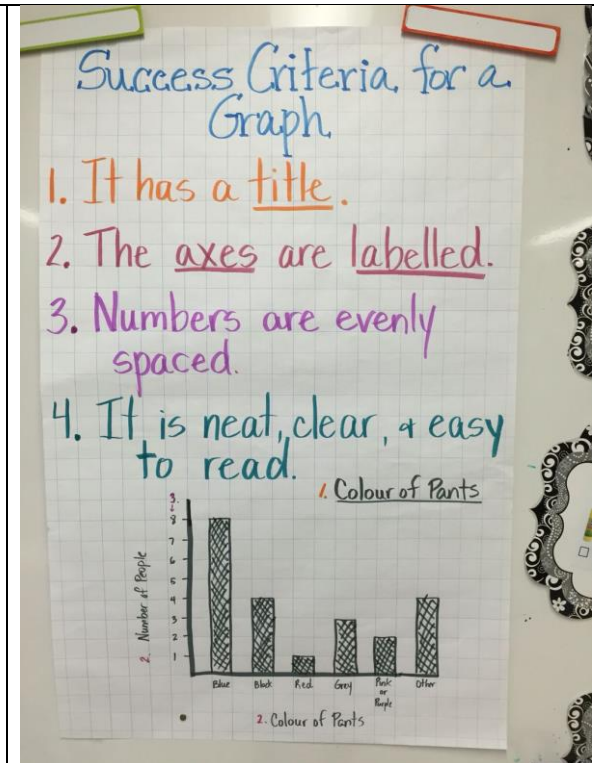 Success Criteria for a
Graph
1. It has a title.
2. The axes are labelled.
3. Numbers are evenly
spaced.
4. It is neat, clear, & easy
to read.
1. Colour of Pants
3.
8
7
6
5
4
3
2
1
2. Number of People
Blue
Black
Red
Grey
Pink
or
Purple
Other
2. Colour of Pants